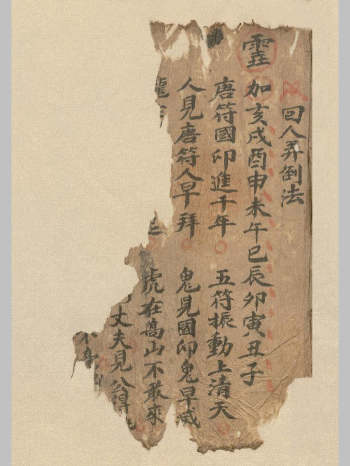 回人弄倒法
靈 加亥戌酉申未午巳辰卯寅丑子
唐符國印進千年 五符振動上清天
人見唐符人早拜 鬼見國印鬼早滅
龍 虎在高山不敢來
丈夫見